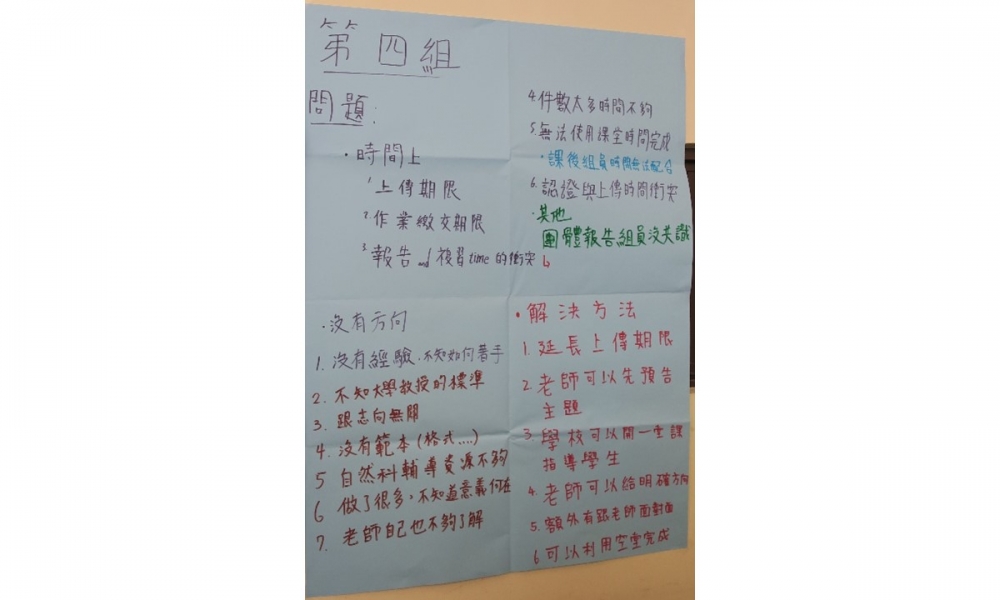 第四組
問題:
・時間上
1.上傳期限
2.作業繳交期限
3.報告 and 複習time的衝突
4.件數太多時間不夠
5.無法使用課堂時間完成
・課後組員時間無法配合
6.認證與上傳時間衝突
・其他
團體報告組員沒共識
・沒有方向
1.沒有經驗.不知如何著手
2.不知大學教授的標準
3.跟志向無關
4.沒有範本(格式....)
5 自然科輔導資源不夠
6 做了很多,不知道意義何在
7.老師自己也不夠了解
・解決方法
1.延長上傳期限
2.老師可以先預告
主題
3.學校可以開一堂課
指導學生
4.老師可以給明確方向
5.額外有跟老師面對面
6可以利用空堂完成